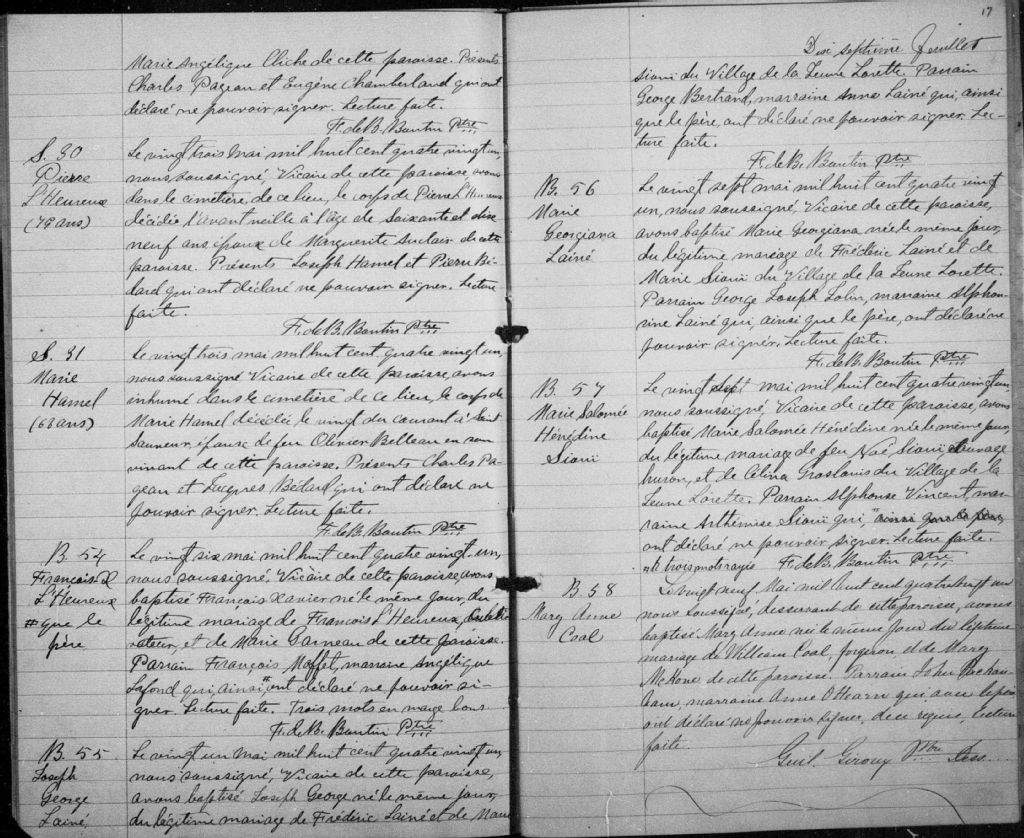 Marie Angélique Cliche de cette paroisse. Présents
Charles Pageau et Eugène Chamberland qui ont
déclaré ne pouvoir signer. Lecture faite.
F. de B. Boutin Ptre
S. 30
Pierre
L'Heureux
(79 ans)
Le vingt trois mai mil huit cent quatre vingt un,
nous soussigné, Vicaire de cette paroisse, avons
dans le cimetière de ce lieu, le corps de Pierre L'Heureux
décédé l'avant veille à l'âge de Soixante et dix
neuf ans époux de Marguerite Auclair de cette
paroisse. Présents Joseph Hamel et Pierre Bé-
dard qui ont déclaré ne pouvoir signer. Lecture
faite.
F. de B. Boutin Ptre
S. 31
Marie
Hamel
(68 ans)
Le vingt trois mai mil huit cent quatre vingt un,
nous soussigné Vicaire de cette paroisse, avons
inhumé dans le cimetière de ce lieu, le corps de
Marie Hamel décédée le vingt du courant à Saint
Sauveur, épouse de feu Olivier Belleau en son
vivant de cette paroisse. Présents Charles Pa-
geau et Bédard qui ont déclaré ne
pouvoir signer. Lecture faite.
F. de B. Boutin Ptre
B. 54
François X
L'Heureux
# que le
père
Le vingt six mai mil huit cent quatre vingt-un,
nous soussigné, Vicaire de cette paroisse, avons
baptisé François Xavier né le même jour, du
légitime mariage de François L'Heureux, Culti
vateur, et de Marie Garneau de cette paroisse.
Parrain François Moffet, marraine Angélique
Lafond qui, ainsi # ont déclaré ne pouvoir si-
gner. Lecture faite. Trois mots en marge bons
F. de B. Boutin Ptre
B. 55
Joseph
George
Lainé
Le vingt un mai mil huit cent quatre vingt un,
nous soussigné, Vicaire de cette paroisse,
avons baptisé Joseph George né le même jour,
du légitime mariage de Frédéric Lainé et de Marie
17
Dix septième feuillet
Sioui du Village de la Jeune Lorette. Parrain
George Bertrand, marraine Anna Lainé qui, ainsi
que le père, ont déclaré ne pouvoir signer. Lec-
ture faite.
F. de B. Boutin Ptre
B. 56
Marie
Georgiana
Lainé
Le vingt sept mai mil huit cent quatre vingt
un, nous soussigné, Vicaire de cette paroisse,
avons baptisé Marie Georgiana née le même jour,
du légitime mariage de Frédéric Lainé et de
Marie Sioui du Village de la Jeune Lorette.
Parrain George Joseph Lolin, marraine Alphon-
sine Lainé qui, ainsi que le père, ont déclaré ne
pouvoir signer. Lecture faite.
F. de B. Boutin Ptre
B. 57
Marie Salomée
Hénédine
Sioui
Le vingt sept mai mil huit cent quatre vingt un,
nous soussigné, Vicaire de cette paroisse, avons
baptisé Marie Salomée Hénédine née le même jour,
du légitime mariage de feu Noé Sioui sauvage
huron, et de Célina Groslouis du Village de la
Jeune Lorette. Parrain Alphonse Vincent, mar-
raine Arthémise Sioui qui, ainsi que le père,
ont déclaré ne pouvoir signer. Lecture faite.
trois mots rayés F. de B. Boutin Ptre
B 58
Mary Anne
Coal
Le vingt neuf Mai mil huit cent quatre vingt un
nous soussigné, desservant de cette paroisse, avons
baptisé Mary Anne née le même jour du légitime
mariage de William Coal, forgeron et de Mary
McKone de cette paroisse. Parrain John
marraine Anne O'Hearn qui avec le père
ont déclaré ne pouvoir signer, de ce requis, lecture
faite.
Guil. Giroux Ptre Dess.